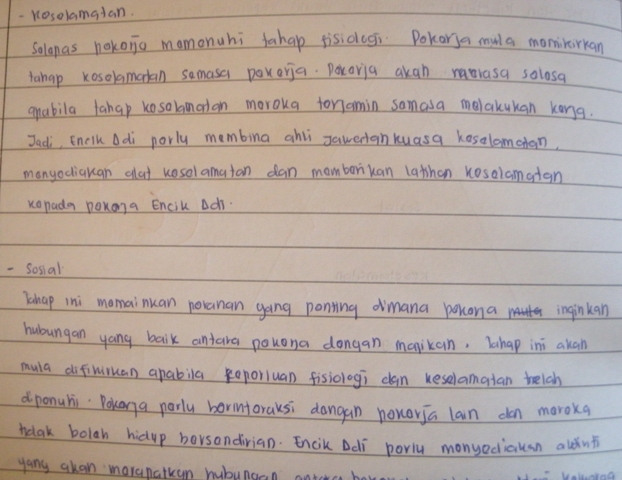 - Keselamatan.
Selepas pekerja memenuhi tahap fisiologi. Pekerja mula memikirkan
tahap keselamatan semasa pekerja. Pekerja akan merasa selesa
apabila tahap keselamatan mereka terjamin semasa melakukan kerja.
Jadi, Encik Adi perlu membina ahli Jawatankuasa keselamatan,
menyediakan alat keselamatan dan memberikan latihan keselamatan
kepada pekerja Encik Adi.
- Sosial
Tahap ini memainkan peranan yang penting dimana pekerja inginkan
hubungan yang baik antara pekerja dengan majikan. Tahap ini akan
mula difikirkan apabila keperluan fisiologi dan keselamatan telah
dipenuhi. Pekerja perlu berinteraksi dengan pekerja lain dan mereka
tidak boleh hidup bersendirian. Encik Adi perlu menyediakan aktiviti
yang akan merapatkan hubungan antara